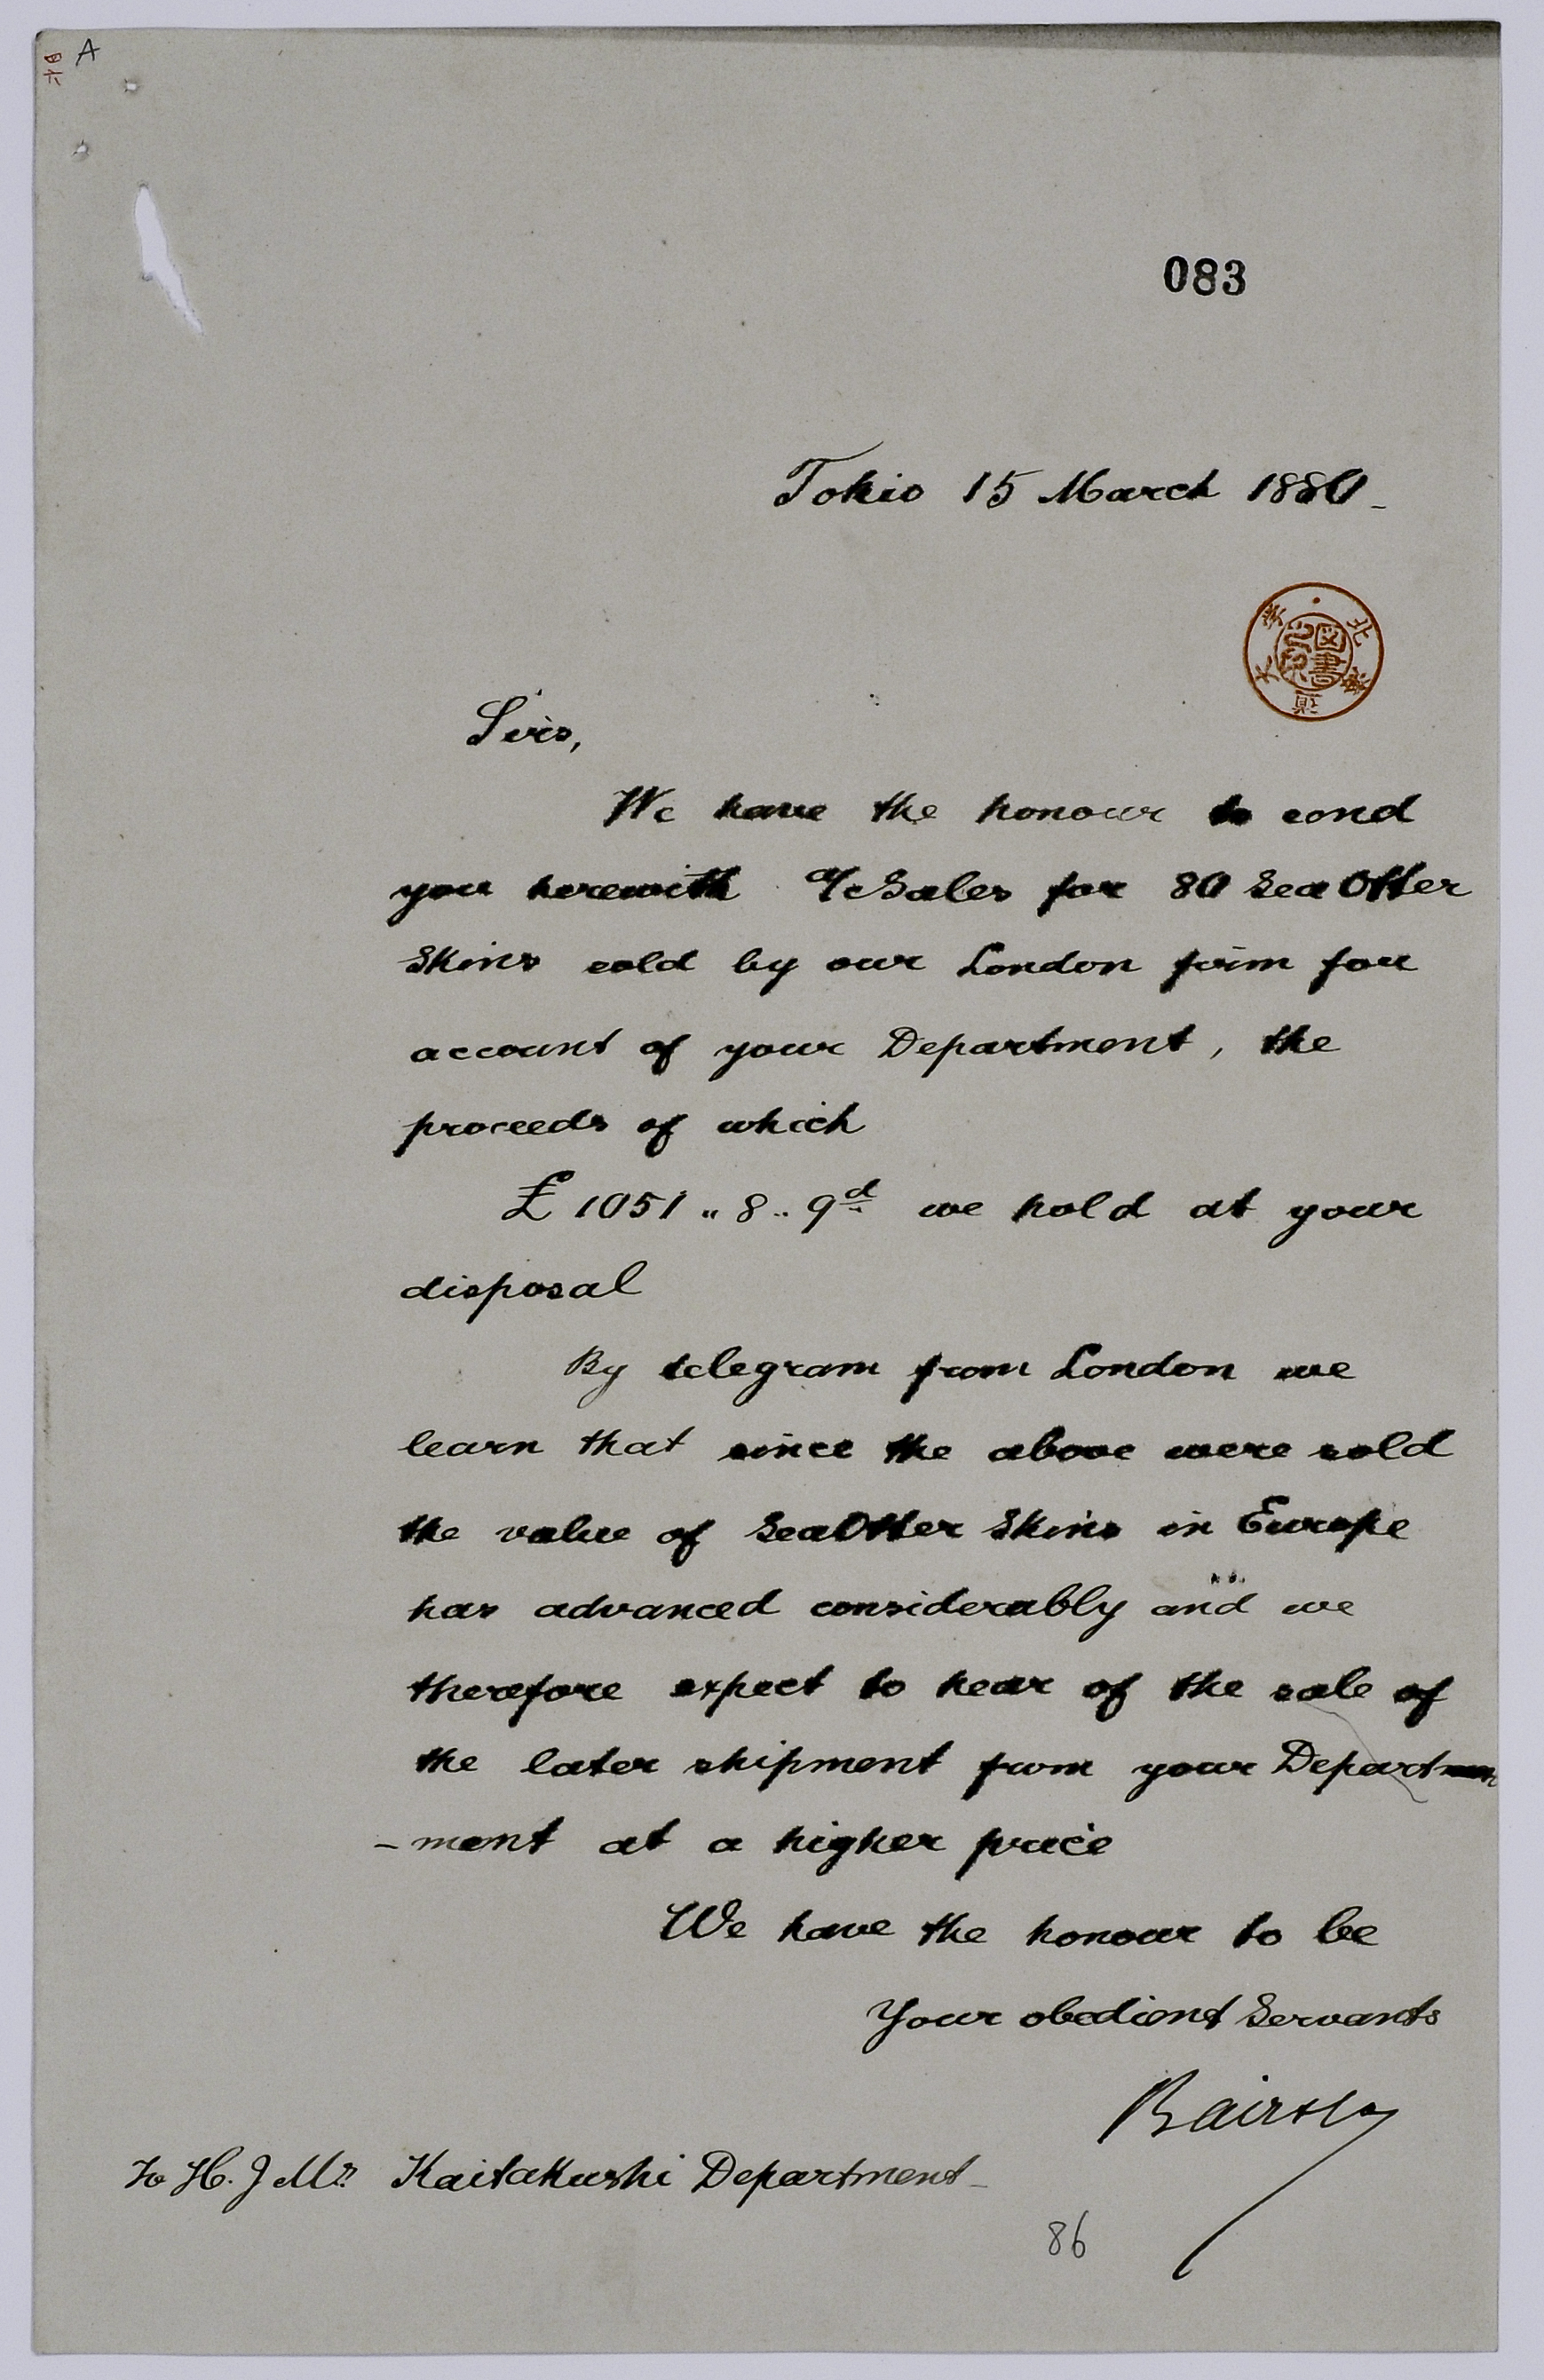 A
083
Tokio 15 March 1880_
北海道大学
図書
Sirs,
We have the honour to send
you herewith a/c Sales for 80 Sea Otter
Skins sold by our London firm for
account of your Department, the
proceeds of which
£ 1051 „ 8 „ 9d we hold at your
disposal
By telegram from London we
learn that since the above were sold
the value of Sea Otter Skins in Europe
has advanced considerably and we
therefore expect to hear of the sale of
the later shipment from your Depart
-ment at a higher price
We have the honour to be
Your obedient Servants
To H. J Ms Kaitakushi Department_
86